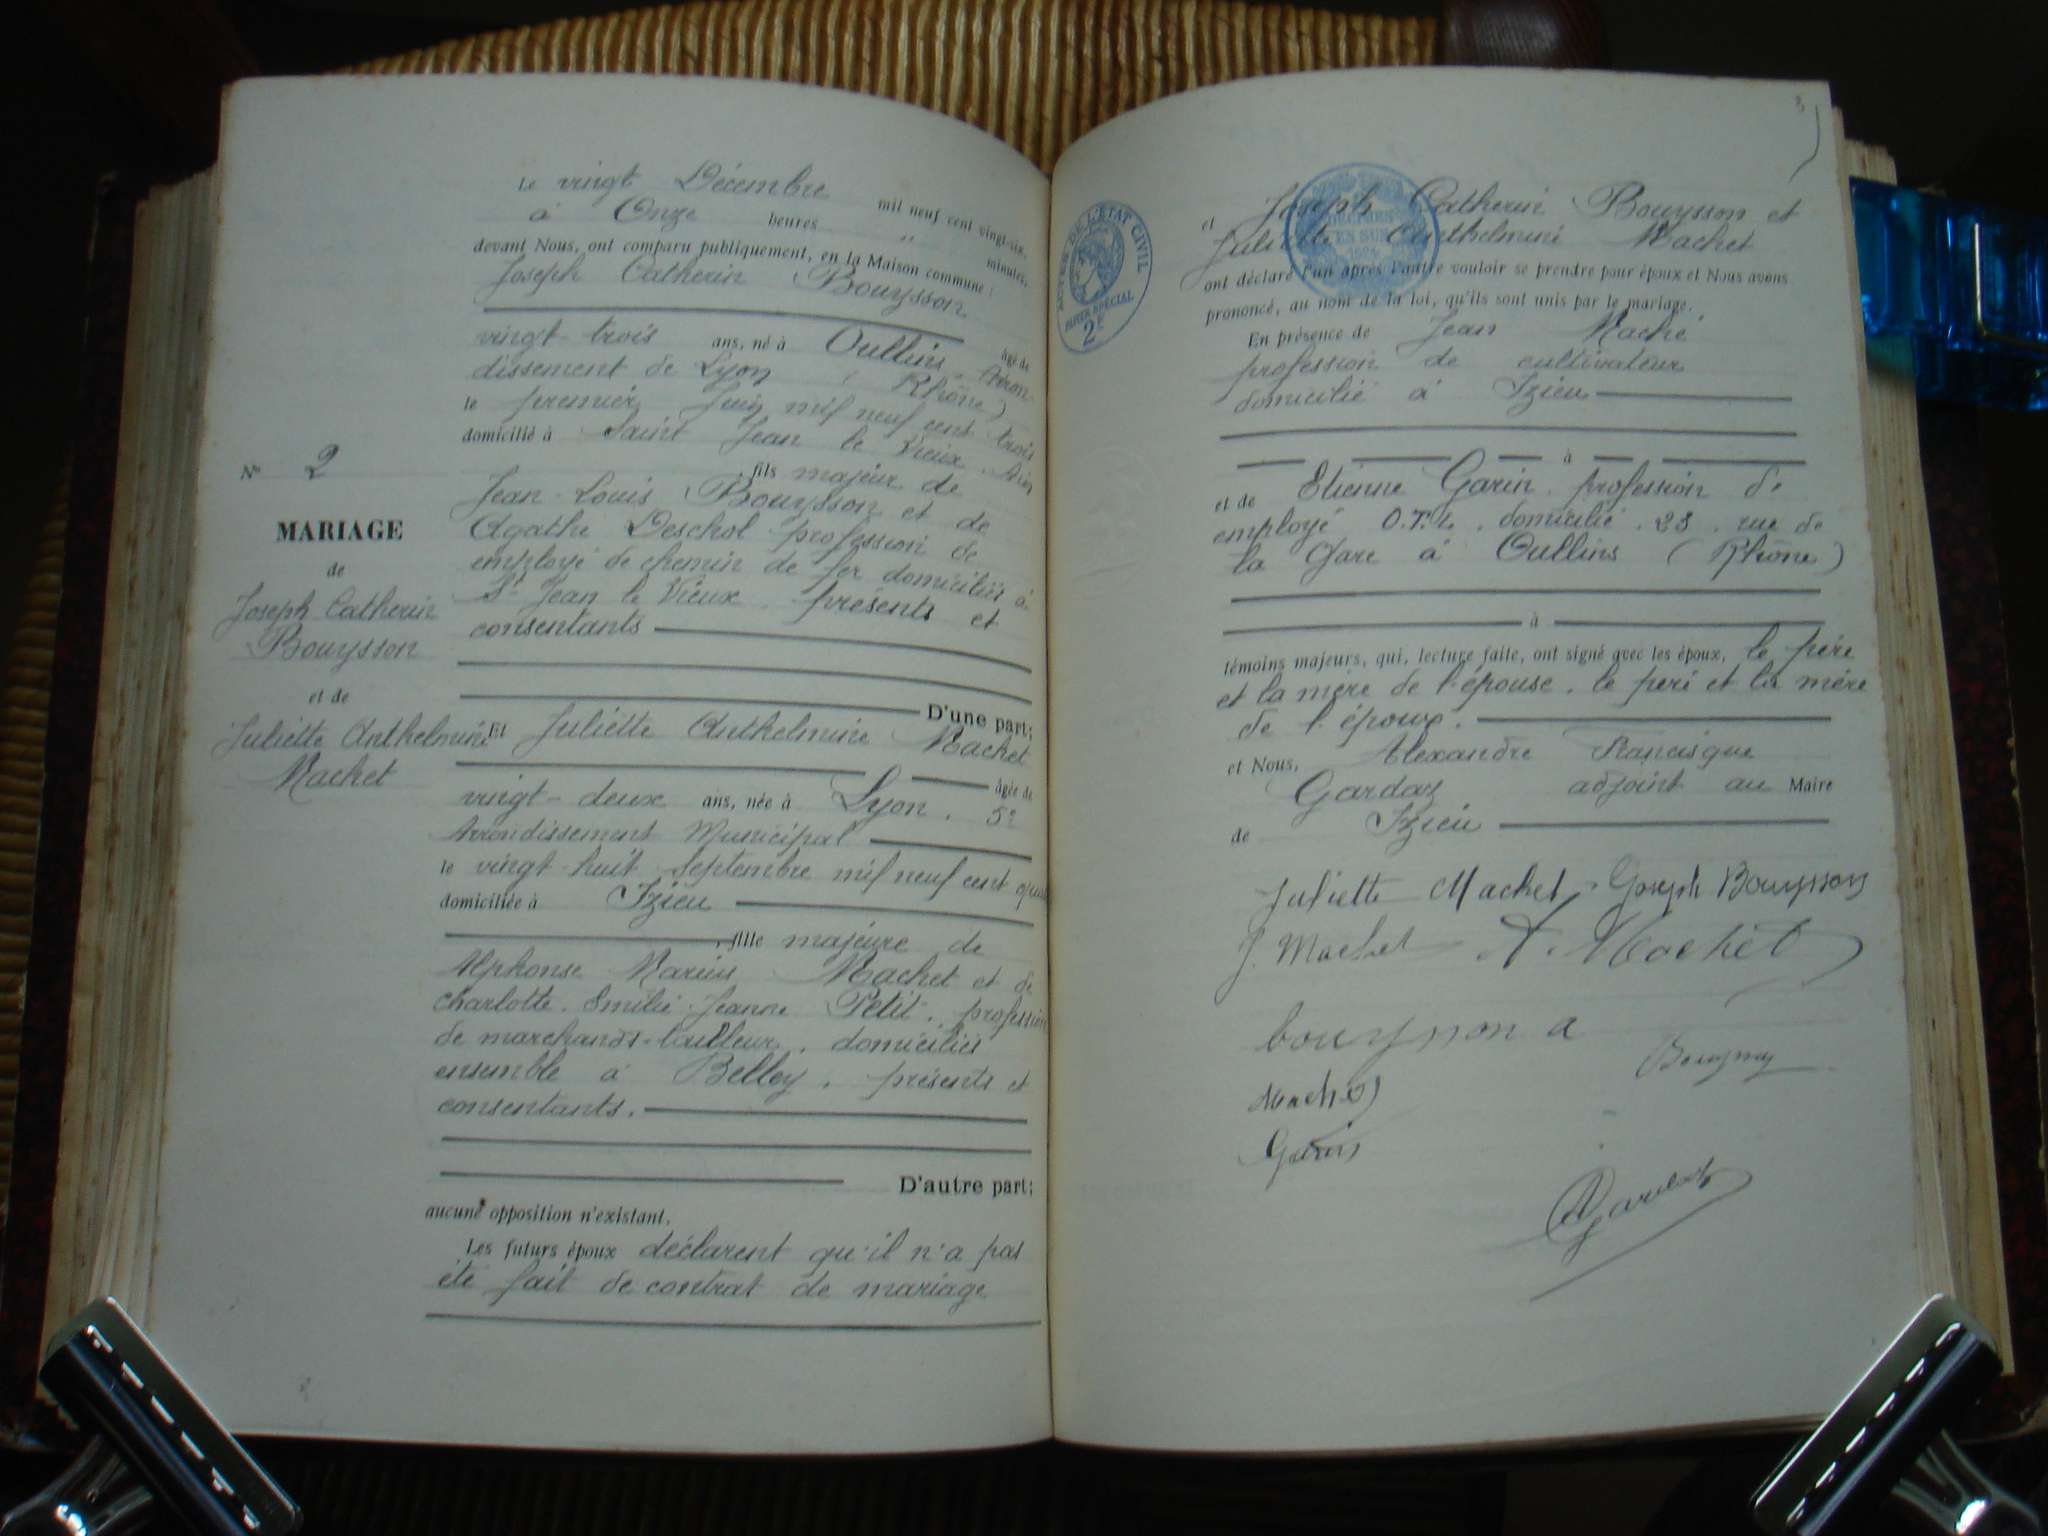 Le vingt Décembre mil neuf cent vingt-six,
à Onze heures " minutes,
devant Nous, ont comparu publiquement, en la Maison commune :
Joseph Catherin Bouysson
âgé de
vingt-trois ans, né à Oullins. Arron-
dissement de Lyon (Rhône)
le premier Juin mil neuf cent trois
domicilié à Saint Jean le Vieux. Ain
, fils majeur de
Jean-Louis Bouysson et de
Agathe Deschol profession de
employé de chemin de fer domiciliés à
St Jean le Vieux. présents et
consentants
D'une part;
Et Juliette Anthelmine Machet
âgée de
vingt-deux ans, née à Lyon. 5e
Arrondissement Municipal
le vingt-huit Septembre mil neuf cent quatre
domiciliée à Izieu
, fille majeure de
Alphonse Marius Machet et de
Charlotte. Emilie-Jeanne Petit. profession
de marchands-tailleur. domiciliés
ensemble à Belley. présents et
consentants.
D'autre part;
aucune opposition n'existant.
Les futurs époux déclarent qu'il n'a pas
été fait de contrat de mariage
N° 2
MARIAGE
de
Joseph Catherin
Bouysson
et de
Juliette Anthelmine
Machet
ACTES DE L'ÉTAT CIVIL
PAPIER SPÉCIAL
2F
EN SUS
et Joseph Catherin Bouysson et
Juliette Anthelmine Machet
ont déclaré l'un après l'autre vouloir se prendre pour époux et Nous avons
prononcé, au nom de la loi, qu'ils sont unis par le mariage.
En présence de Jean Maché
profession de cultivateur
domicilié à Izieu
à
et de Etienne Garin. profession d'
employé O.T.L. domicilié. 28. rue de
la Gare à Oullins (Rhône)
à
témoins majeurs, qui, lecture faite, ont signé avec les époux, le père
et la mère de l'épouse. le père et la mère
de l'époux.
et Nous, Alexandre Francisque
Gardaz adjoint au Maire
de Izieu
Juliette Machet Joseph Bouysson
J. Machet A. Machet
bouysson a
Bouysson
Maché J
Garin
A Gardaz